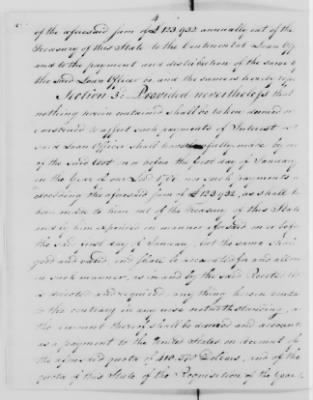 4
of the aforesaid sum of £ 123,932 annually out of the
Treasury of this State to the Continental Loan Off
and to the payment and distribution of the same by
the said Loan Officer be and the same is hereby repe
Section 3: Provided nevertheless that
nothing herein contained shall be taken deemed or
construed to affect such payments of Interest as
said Loan Officer shall have lawfully made by
of the said Act on or before the first day of January
in the Year of our Lord 178 nor such payments
exceeding the aforesaid sum of £ 123,932, as shall
been made to him out of the Treasury of this State
and by him expended in manner aforesaid on or before
the said first day of January, but the same shall
good and valid, and shall be accounted for and allow
in such manner, as in and by the said Recited
is directed and required, any thing herein conta
to the contrary in any wise notwithstanding,
the amount thereof shall be deemed and account
as a payment to the United States on account of
the aforesaid quota of 410, Dollars, and of the
quota of this State of the Requisition of the Year